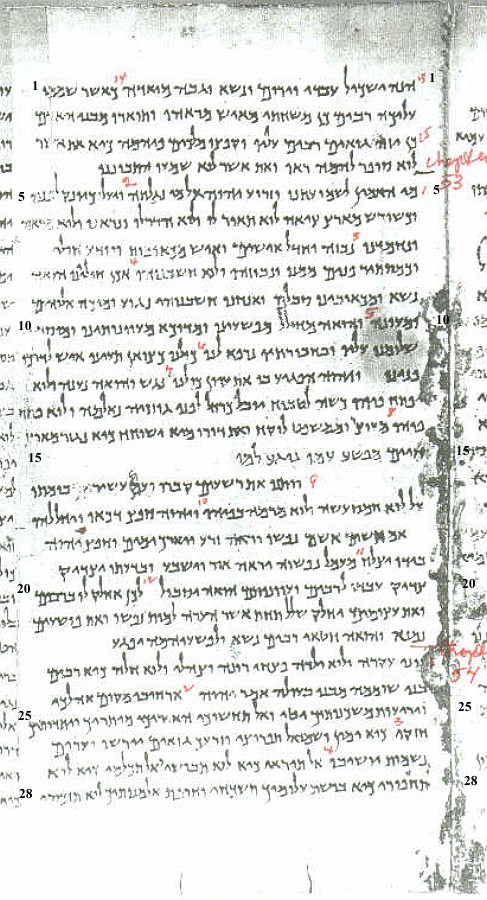 הנה ישכיל עבדי וירום ונשא וגבה מואדה כאשר שממו
עליכה רבים כן משחתי מאיש מראהו ותוארו מבני האדם
כן יזה גואים רבים עליו וקפצו מלכים פיהמה כיא את אשר
לוא סופר להמה ראו ואת אשר לוא שמעו התבוננו
chapter 53
מי האמין לשמועתנו וזרוע יהוה אל מי נגלתה ויעל כיונק לפניו
וכשורש מארץ ציה לוא תאר לו ולוא הדר לו ונראנו ולוא מראה
ונחמדנו נבזה וחדל אישים ואיש מכאובות ויודע חולי
וכמסתר פנים ממנו ונבוזהו ולוא חשבנוהו אכן חוליינו הואה
נשא ומכאובינו סבלם ואנחנו חשבנוהו נגוע ומוכה אלוהים
ומעונה והואה מחולל מפשעינו ומדוכא מעוונותינו ומוסר
שלומנו עליו ובחבורתיו נרפא לנו כולנו כצואן תעינו איש לדרכו
פנינו ויהוה הפגיע בו את עוון כולנו נגש והואה נענה ולוא
יפתח פיהו כשה לטבוח יובל כרחל לפני גוזזיה נאלמה ולוא פתח
פיהו מעוצר וממשפט לוקח ואת דורו מיא ישוחח כיא נגזר מארץ
חיים מפשע עמו נוגע למו
ויתנו את רשעים קברו ועם עשיר בומתו
על לוא חמס עשה ולוא מרמה בפיהו ויהוה חפץ דכאו ויחללהו
אם תשים אשם נפשו יראה זרע ויארך ימים וחפץ יהוה
בידו יצלח מעמל נפשוה יראה אור וישבע ובדעתו יצדיק
צדיק עבדו לרבים ועוונותם הואה יסבול לכן אחלק לו ברבים
ואת עצומים יחלק שלל תחת אשר הערה למות נפשו ואת פושעים
נמנא והואה חטאי רבים נשא ולפשעיהמה יפגע
chapter 54
רוני עקרה ולוא ילדה פצחי רונה וצהלי ולוא חלה כיא רבים
בני שוממה מבני בעולה אמר יהוה ארחיבי מקום אהלך
ויריעות משכנותיך יטי ואל תחשוכי האריכי מיתריך ויתדותיך
חזקי כיא ימין ושמאול תפרוצי וזרעך גואים יירש וערים
נשמות יושיבו אל תיראי כיא לוא תבושי ואל תכלמי כיא לוא
תחפירי כיא בושת עלומיך תשכחי וחרפת אלמנותיך לוא תזכורי